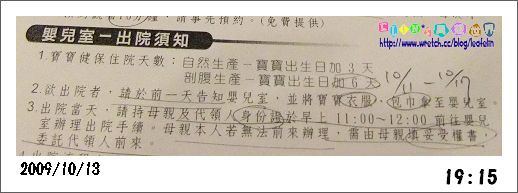 請事先預約。(免費提供)
嬰兒室－出院須知
www.wretch.cc/blog/leofeim
1.寶寶健保住院天數：自然生產－寶寶出生日加3天
剖腹生產－寶寶出生日加6天
10/11－10/17
2.欲出院者，請於前一天告知嬰兒室，並將寶寶衣服，包巾拿至嬰兒室。
3.出院當天，請持母親及代領人身份證於早上11:00~12:00前往嬰兒
室辦理出院手續。母親本人若無法前來辦理，需由母親填妥受權書，
委託代領人前來。
2009/10/13
19:15